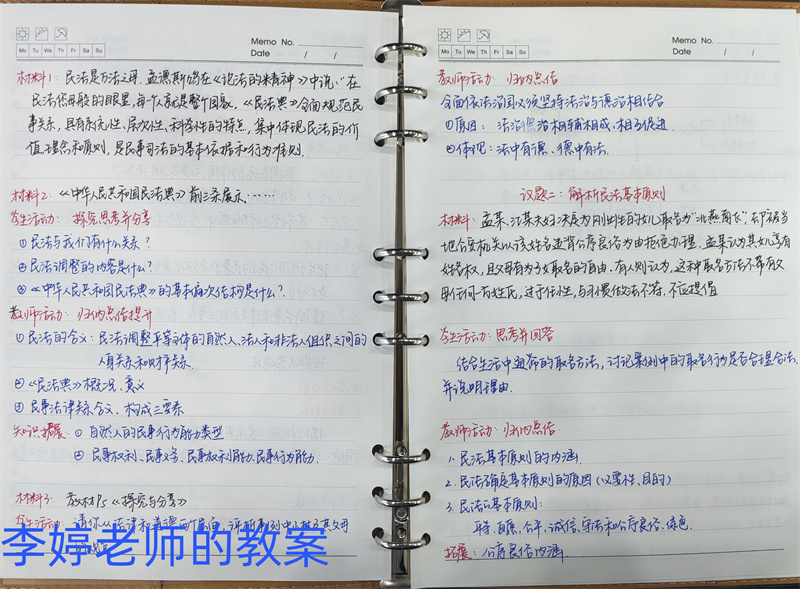 Memo No.
Mo Tu We Th Fr Sa Su
Date / /
材料1：民法是万法之母.孟德斯鸠在《论法的精神》中说："在
民法慈母般的眼里,每个人就是整个国家。《民法典》全面规范民
事关系,具有系统性、层次性、科学性的特点,集中体现民法的价
值、理念和原则,是民事司法的基本依据和行为准则.
材料2：《中华人民共和国民法典》前三条展示.……
学生活动：探究思考并分享
①民法与我们有什么关系？
②民法调整的内容是什么？
③《中华人民共和国民法典》的基本层次结构是什么？.
教师活动：归纳总结提升
①民法的含义：民法调整平等主体的自然人、法人和非法人组织之间的
人身关系和财产关系.
②《民法典》概况、意义
③民事法律关系含义、构成三要素
知识拓展：①自然人的民事行为能力类型
②民事权利、民事义务、民事权利能力、民事行为能力.
材料3：教材P5《探究与分享》
学生活动：请你从法律和道德两个层面,评析事例中小
李婷老师的教案
Memo No.
Mo Tu We Th Fr Sa Su
Date / /
教师活动：归纳总结
全面依法治国必须坚持法治与德治相结合
①原因：法治德治相辅相成、相互促进.
②体现：法中有德、德中有法.
议题二：解析民法基本原则
材料：孟某、江某夫妇决定为刚出生的女儿取名为"北燕南飞",却被当
地公安机关以该姓名违背公序良俗为由拒绝办理.孟某认为其女儿享有
姓名权,且父母有为子女取名的自由.有人则认为,这种取名方法不带有父
母任何一方姓氏,过于任性,与习惯做法不符,不应提倡
学生活动：思考并回答
结合生活中通常的取名方法,讨论案例中的取名行为是否合理合法,
并说明理由.
教师活动：归纳总结
1.民法基本原则的内涵
2.民法确定基本原则的原因（必要性、目的）
3.民法的基本原则：
平等、自愿、公平、诚信、守法和公序良俗、绿色.
拓展：公序良俗内涵